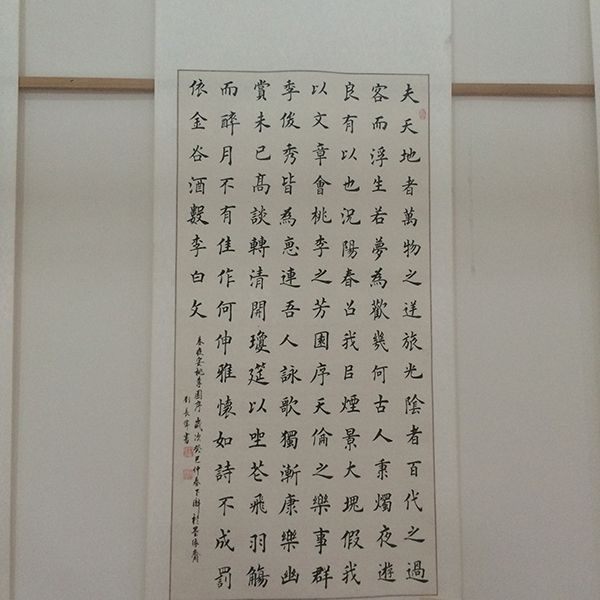 夫天地者萬物之逆旅光陰者百代之過
客而浮生若夢為歡幾何古人秉燭夜遊
良有以也況陽春召我㠯煙景大塊假我
以文章會桃李之芳園序天倫之樂事群
季俊秀皆為惠連吾人詠歌獨漸康樂幽
賞未已高談轉清開瓊筵以坐花飛羽觴
而醉月不有佳作何伸雅懷如詩不成罰
依金谷酒數李白文
春夜宴桃李園序歲次癸巳仲春下澣於齋
書